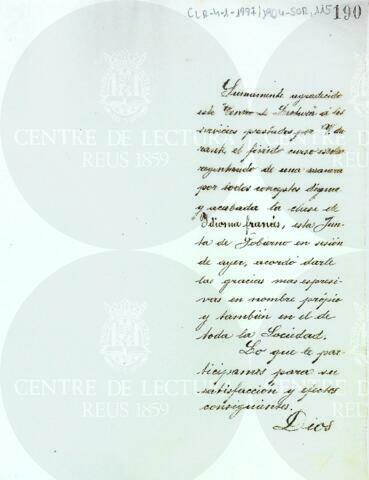 CLR-4-1-1997/1904-SOR,115
190
Sumamente agradecido
este Centro de Lectura a los
servicios prestados por V. du-
rante el finido curso escolar
regentando de una manera
por todos conceptos digna
y acabada la clase de
Idioma francés, esta Jun-
ta de Gobierno en sesión
de ayer, acordó darle
las gracias mas espresi-
vas en nombre própio
y también en el de
toda la Sociedad.
Lo que le par-
ticipamos para su
satisfacción y efectos
consiguientes.
Dios
CENTRE DE LECTURA
REUS 1859
CENTRE DE LECTURA
REUS 1859